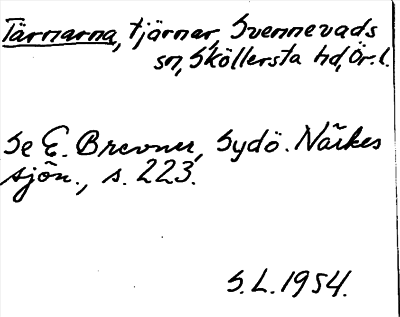 Tärnarna, tjärnar, Svennevads
sn, Sköllersta hd, Ör. l.
Se E. Brevner, Sydö. Närkes
sjön., s. 223.
S.L. 1954.